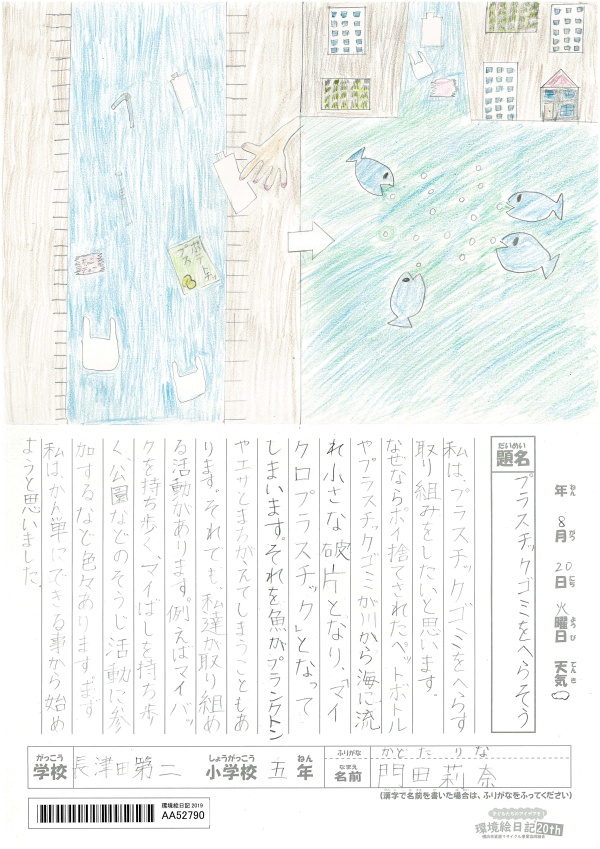 ポテトチップス
年 8月 20日 火曜日 天気
ねん がつ にち ようび てんき
だいめい
題名
プラスチックゴミをへらそう
私は、プラスチックゴミをへらす
取り組みをしたいと思います。
なぜならポイ捨てされたペットボトル
やプラスチックゴミが川から海に流
れ小さな破片となり、「マイ
クロプラスチック」となって
しまいます。それを魚がプランクトン
やエサとまちがえてしまうこともあ
ります。それでも、私達が取り組め
る活動があります。例えばマイバッ
クを持ち歩く、マイばしを持ち歩
く、公園などのそうじ活動に参
加するなど色々あります。まず
私は、かん単にできる事から始め
ようと思いました。
がっこう
学校 長津田第二
しょうがっこう ねん
小学校 五年
ふりがな かどた りな
なまえ
名前 門田莉奈
(漢字で名前を書いた場合は、ふりがなをふってください)
環境絵日記2019
AA52790
環境絵日記20th